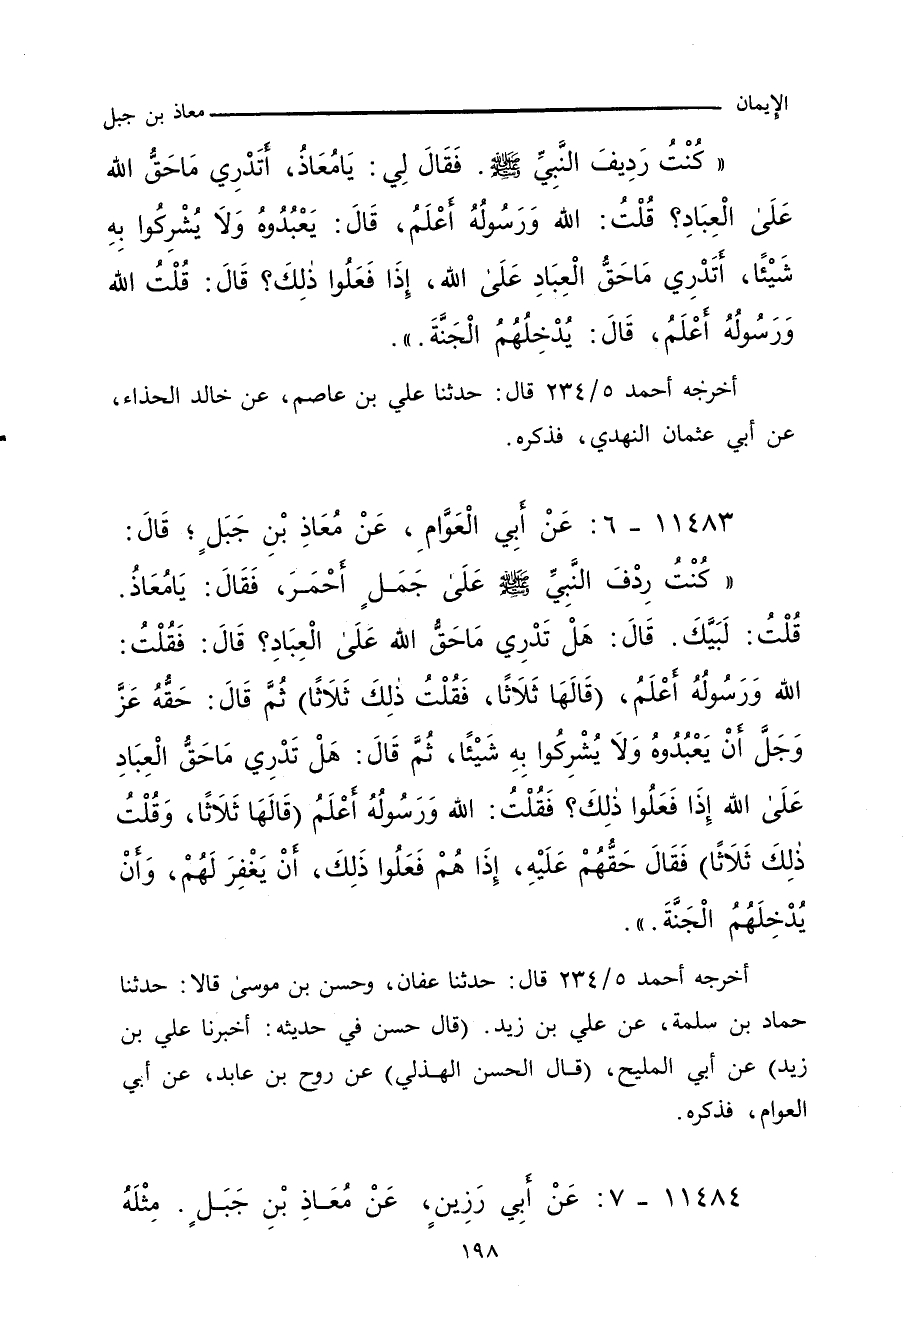 الإيمان ــــــــــــ معاذ بن جبل
« كُنْتُ رَدِيفَ النَّبِيِّ ﷺ. فَقَالَ لِي: يَامُعَاذُ، أَتَدْرِي مَاحَقُّ الله
عَلَىٰ الْعِبَادِ؟ قُلْتُ: الله وَرَسُولُهُ أَعْلَمُ، قَالَ: يَعْبُدُوهُ وَلَا يُشْرِكُوا بِهِ
شَيْئًا، أَتَدْرِي مَاحَقُّ الْعِبَادِ عَلَىٰ الله، إِذَا فَعَلُوا ذٰلِكَ؟ قَالَ: قُلْتُ الله
وَرَسُولُهُ أَعْلَمُ، قَالَ: يُدْخِلُهُمُ الْجَنَّةَ.».
أخرجه أحمد ٢٣٤/٥ قال: حدثنا علي بن عاصم، عن خالد الحذاء،
عن أبي عثمان النهدي، فذكره.
١١٤٨٣ - ٦: عَنْ أَبِي الْعَوَّامِ، عَنْ مُعَاذِ بْنِ جَبَلٍ؛ قَالَ:
« كُنْتُ رِدْفَ النَّبِيِّ ﷺ عَلَىٰ جَمَلٍ أَحْمَرَ، فَقَالَ: يَامُعَاذُ.
قُلْتُ: لَبَيَّكَ. قَالَ: هَلْ تَدْرِي مَاحَقُّ الله عَلَىٰ الْعِبَادِ؟ قَالَ: فَقُلْتُ:
الله وَرَسُولُهُ أَعْلَمُ، (قَالَهَا ثَلَاثًا، فَقُلْتُ ذٰلِكَ ثَلَاثًا) ثُمَّ قَالَ: حَقُّهُ عَزَّ
وَجَلَّ أَنْ يَعْبُدُوهُ وَلَا يُشْرِكُوا بِهِ شَيْئًا، ثُمَّ قَالَ: هَلْ تَدْرِي مَاحَقُّ الْعِبَادِ
عَلَىٰ الله إِذَا فَعَلُوا ذٰلِكَ؟ فَقُلْتُ: الله وَرَسُولُهُ أَعْلَمُ (قَالَهَا ثَلَاثًا، وَقُلْتُ
ذٰلِكَ ثَلَاثًا) فَقَالَ حَقُّهُمْ عَلَيْهِ، إِذَا هُمْ فَعَلُوا ذَلِكَ، أَنْ يَغْفِرَ لَهُمْ، وَأَنْ
يُدْخِلَهُمُ الْجَنَّةَ.».
أخرجه أحمد ٢٣٤/٥ قال: حدثنا عفان، وحسن بن موسىٰ قالا: حدثنا
حماد بن سلمة، عن علي بن زيد. (قال حسن في حديثه: أخبرنا علي بن
زيد) عن أبي المليح، (قال الحسن الهذلي) عن روح بن عابد، عن أبي
العوام، فذكره.
١١٤٨٤ - ٧: عَنْ أَبِي رَزِينٍ، عَنْ مُعَاذِ بْنِ جَبَلٍ. مِثْلَهُ
١٩٨